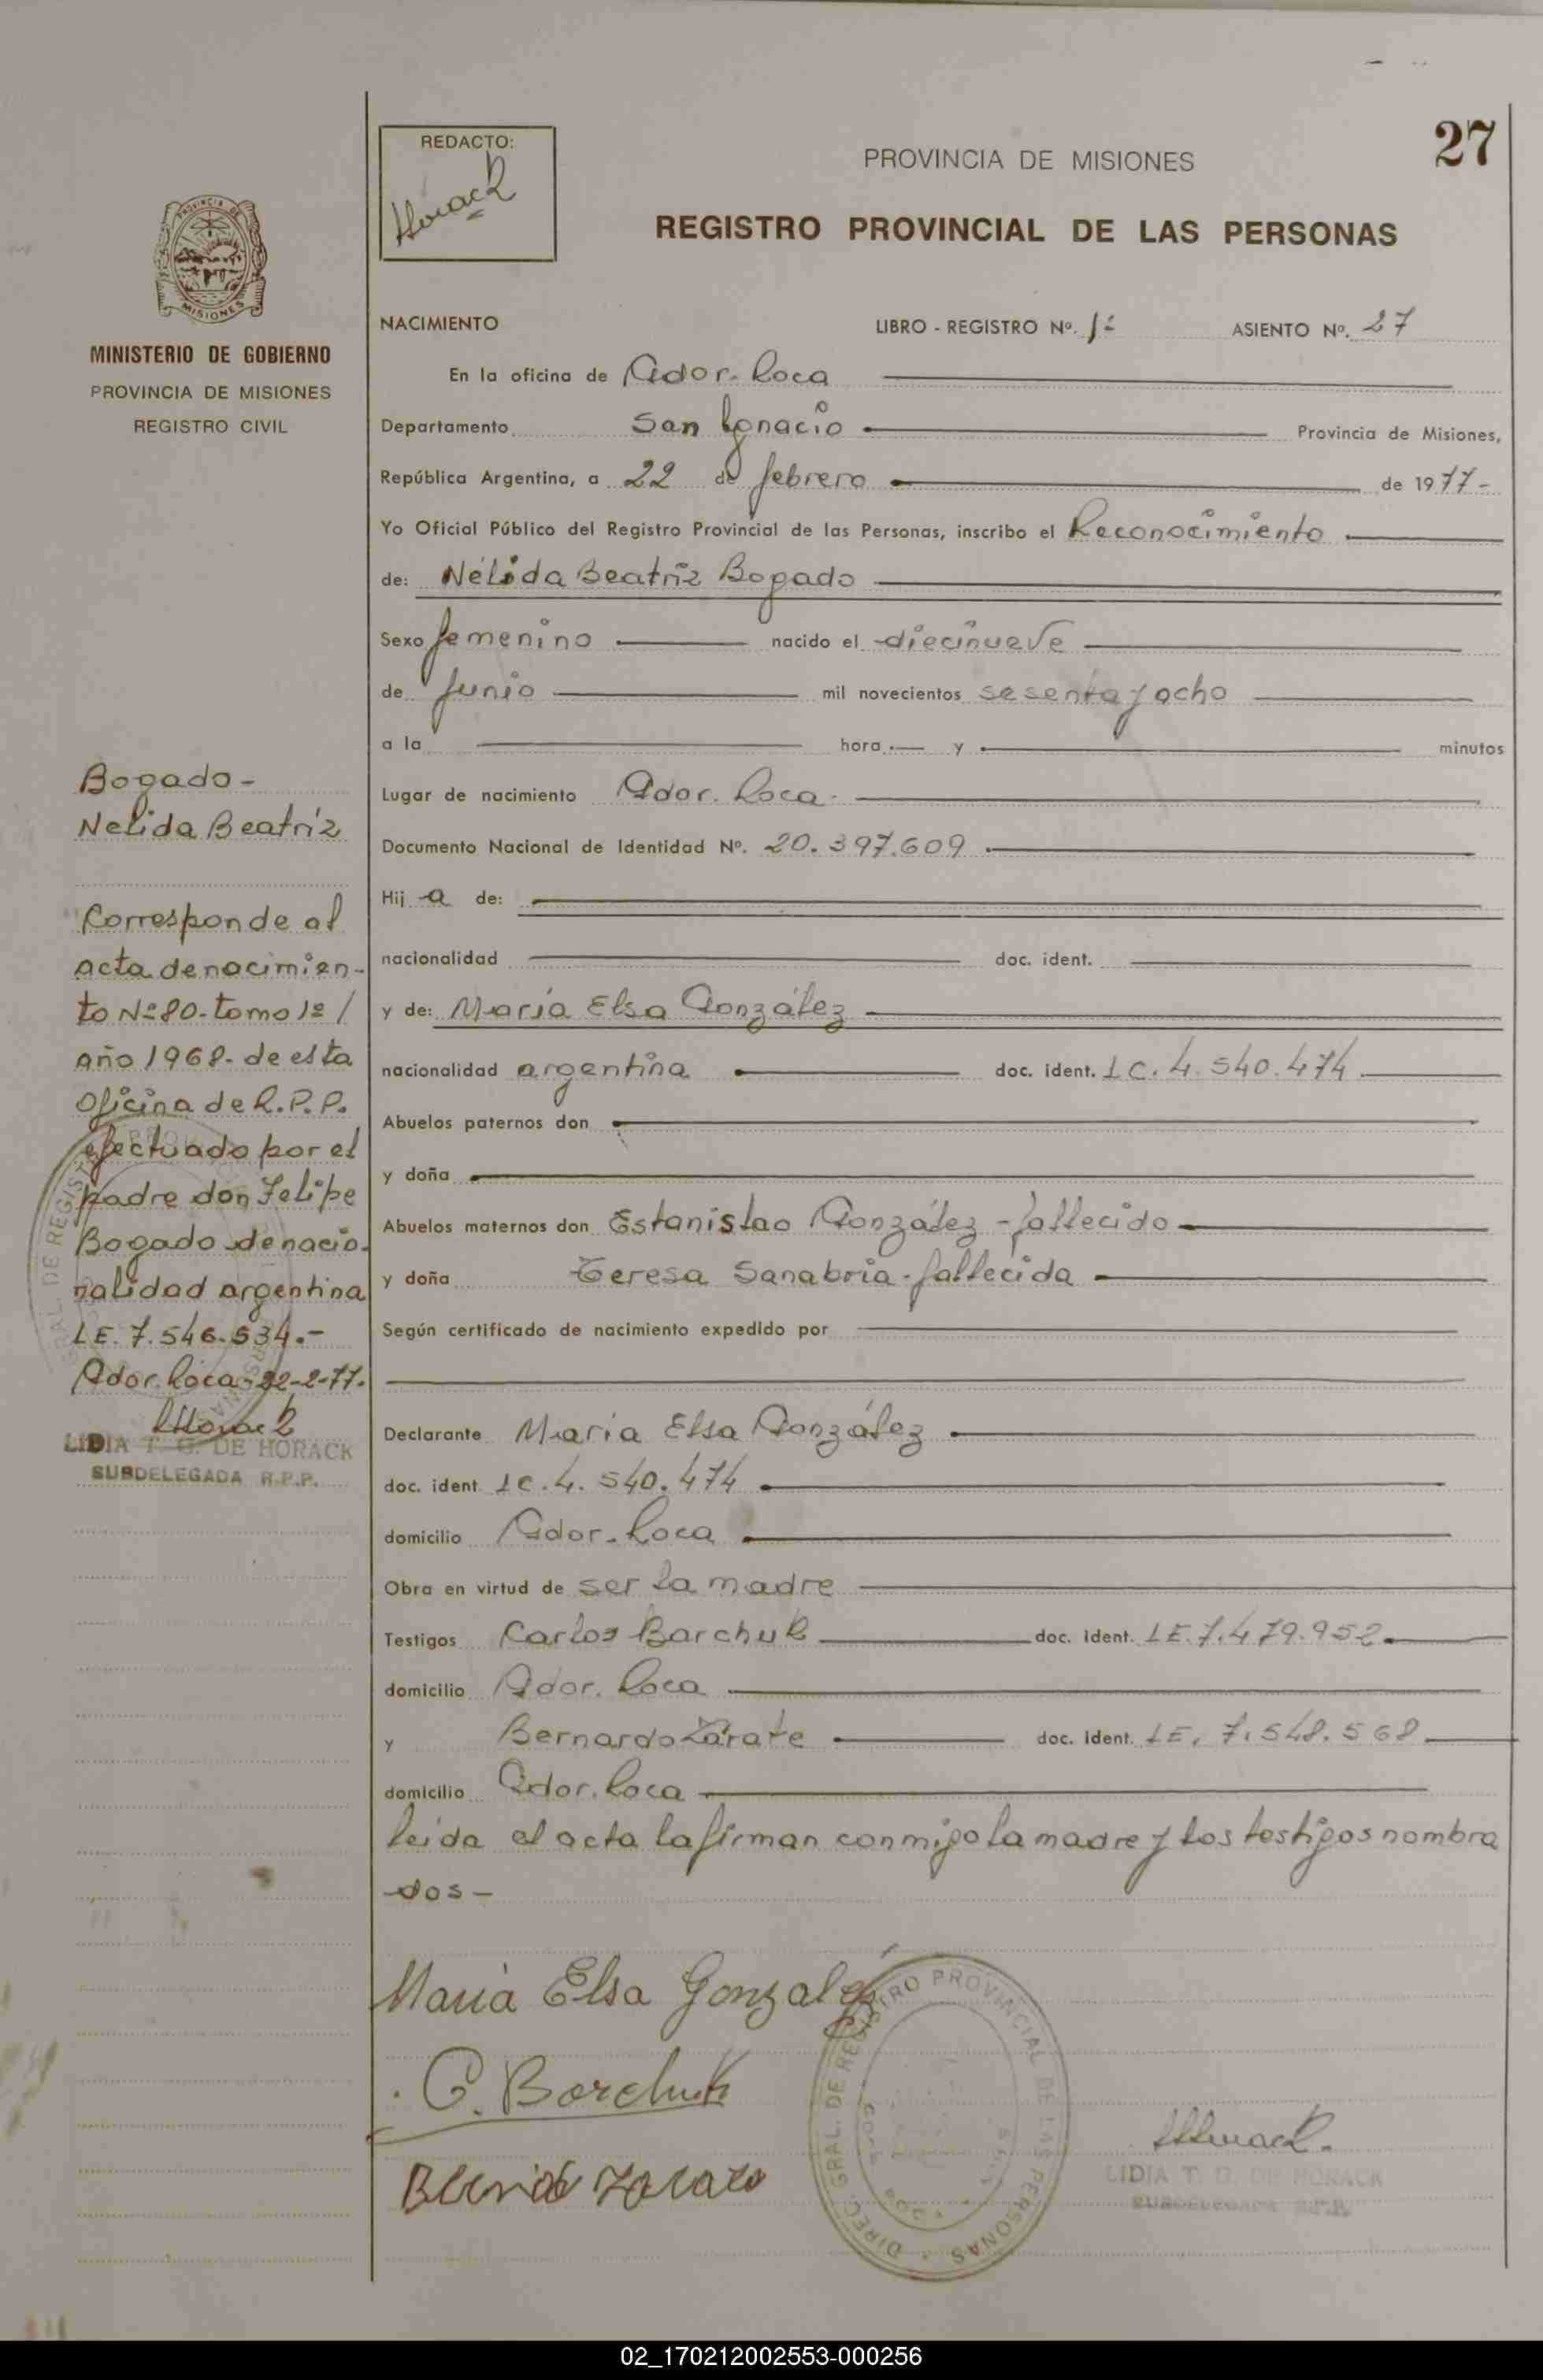 27
REDACTO:
Horack
PROVINCIA DE MISIONES
REGISTRO PROVINCIAL DE LAS PERSONAS
PROVINCIA DE
MISIONES
MINISTERIO DE GOBIERNO
PROVINCIA DE MISIONES
REGISTRO CIVIL
NACIMIENTO LIBRO - REGISTRO Nº. 1º ASIENTO Nº. 27
En la oficina de Gdor. Roca
Departamento San Ignacio Provincia de Misiones,
República Argentina, a 22 de febrero de 1977-
Yo Oficial Público del Registro Provincial de las Personas, inscribo el Reconocimiento
de: Nélida Beatriz Bogado
Sexo femenino nacido el diecinueve
de Junio mil novecientos sesenta y ocho
a la hora y minutos
Lugar de nacimiento Gdor. Roca.
Documento Nacional de Identidad Nº. 20.397.609
Hij a de:
nacionalidad doc. ident.
y de: María Elsa González
nacionalidad argentina doc. ident. LC. 4.540.474
Abuelos paternos don
y doña
Abuelos maternos don Estanislao González - fallecido
y doña Teresa Sanabria - fallecida
Según certificado de nacimiento expedido por
Declarante María Elsa González
doc. ident LC. 4.540.474
domicilio Gdor. Roca
Obra en virtud de ser la madre
Testigos Carlos Barchuk doc. ident. LE. 7.479.952
domicilio Gdor. Roca
y Bernardo Zárate doc. ident. LE. 7.548.568
domicilio Gdor. Roca
leída el acta la firman conmigo la madre y los testigos nombra
dos -
María Elsa Gonzalez
C. Barchuk
DIREC. GRAL. DE REGISTRO PROVINCIAL DE LAS PERSONAS
LIDIA T. G. DE HORACK
SUBDELEGADA R.P.P.
Bogado -
Nelida Beatríz
Corresponde al
acta de nacimien-
to Nº 80- tomo 1º /
año 1968- de esta
Oficina de R.P.P.
efectuado por el
padre don Felipe
Bogado de nacio-
nalidad argentina
LE. 7.546.534.-
Gdor. Roca - 22-2-77.
Horack
LIDIA T. G. DE HORACK
SUBDELEGADA R.P.P.
02_170212002553-000256